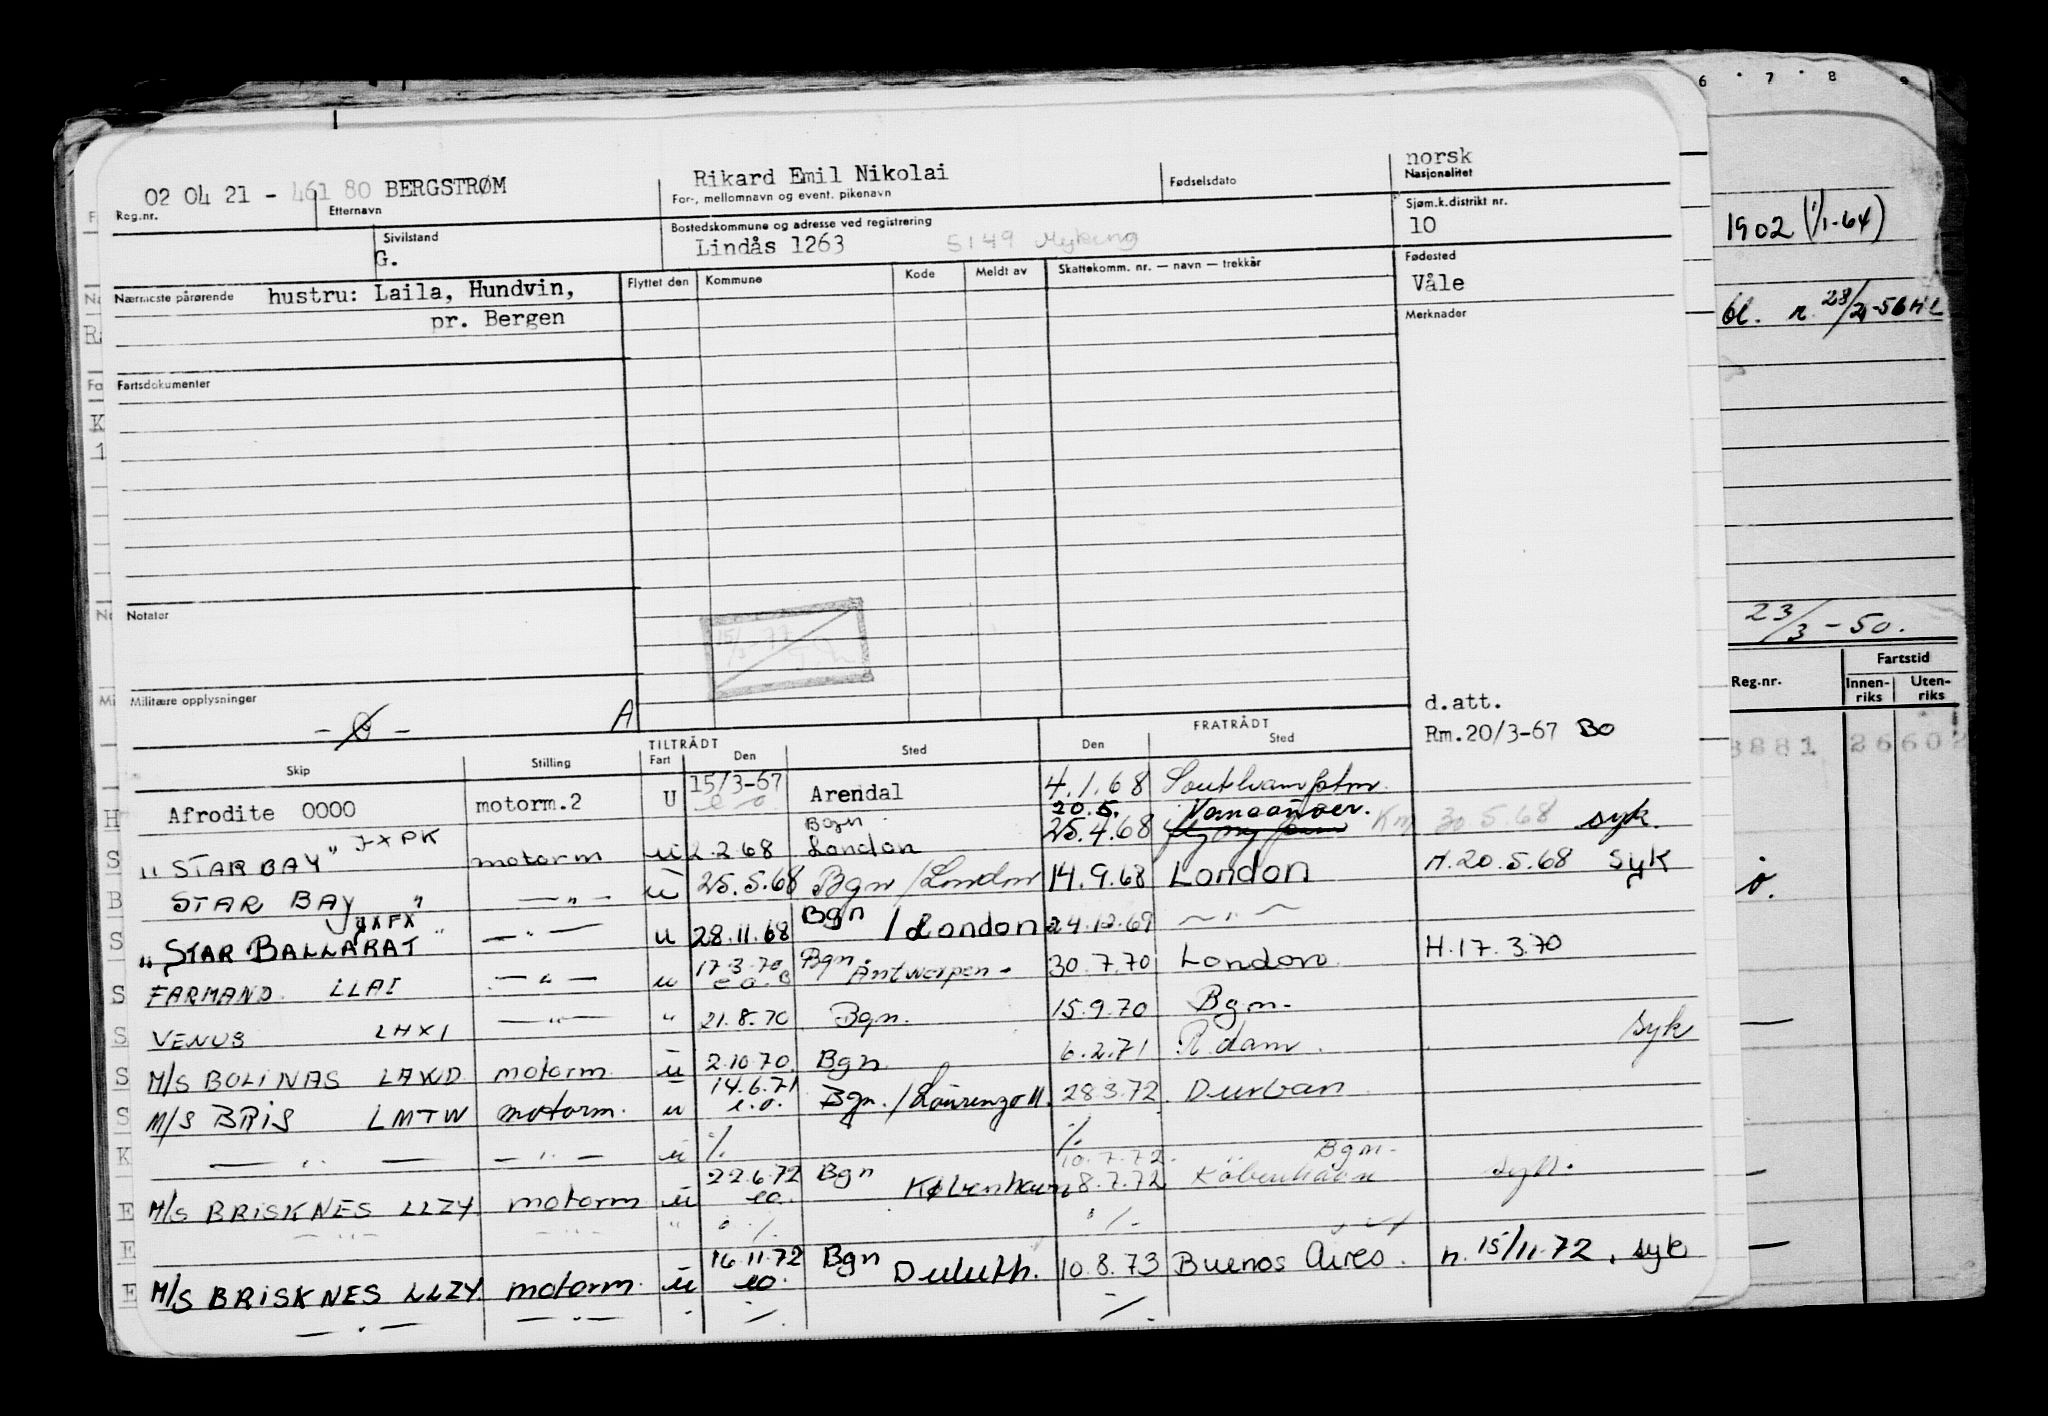 02 04 21 - 461 80 BERGSTRØM
Reg.nr.
Etternavn
Rikard Emil Nikolai
For-, mellomnavn og event. pikenavn
Fødselsdato
norsk
Nasjonalitet
Sivilstand
G.
Bostedskommune og adresse ved registrering
Lindås 1263 5149 Myking
Sjøm.k.distrikt nr.
10
Nærmeste pårørende hustru: Laila, Hundvin,
pr. Bergen
Flyttet den
Kommune
Kode
Meldt av
Skattekomm. nr. — navn — trekkår
Fødested
Våle
Merknader
Fartsdokumenter
Notater
Militære opplysninger
A
d.att.
Rm.20/3-67 BO
TILTRÅDT
FRATRÅDT
Skip
Stilling
Fart
Den
Sted
Den
Sted
Afrodite 0000 motorm.2 U 15/3-67 Arendal 4.1.68 Southampton
"STAR BAY" JXPK motorm u 2.2.68 Bgn London 20.5. 25.4.68 Vancouver. Km 30.5.68 syk.
STAR BAY " — " — u 25.5.68 Bgn/London 14.9.68 London H.20.5.68 syk
"STAR BALLARAT" JXFX — " — u 28.11.68 Bgn/London 24.12.69 — " —
FARMAND LLAI — " — u 17.3.70 e.o. Bgn Antwerpen - 30.7.70 London H.17.3.70
VENUS LHXI — " — " 21.8.70 Bgn. 15.9.70 Bgn.
M/S BOLINAS LAWD motorm u 2.10.70 Bgn 6.2.71 R.dam. syk
M/S BRIS LMTW motorm. u 14.6.71 e.o. Bgn./Lourenzo M. 28.3.72 Durban
— " — — " — u %. %.
M/S BRISKNES LLZY. motorm u 22.6.72 eo. Bgn København 10.7.72. 8.7.72 Bgn. København syk.
— " — — " — " %. %.
M/S BRISKNES LLZY. motorm. u 16.11.72 eo. Bgn Duluth. 10.8.73 Buenos Aires. n. 15/11-72. syk
— " — — " — %. %.
6 7 8 9
1902 (1/1-64)
bl. n. 28/2-56
23/3-50.
Reg.nr.
Fartstid
Innen-
riks
Uten-
riks
8881 26602